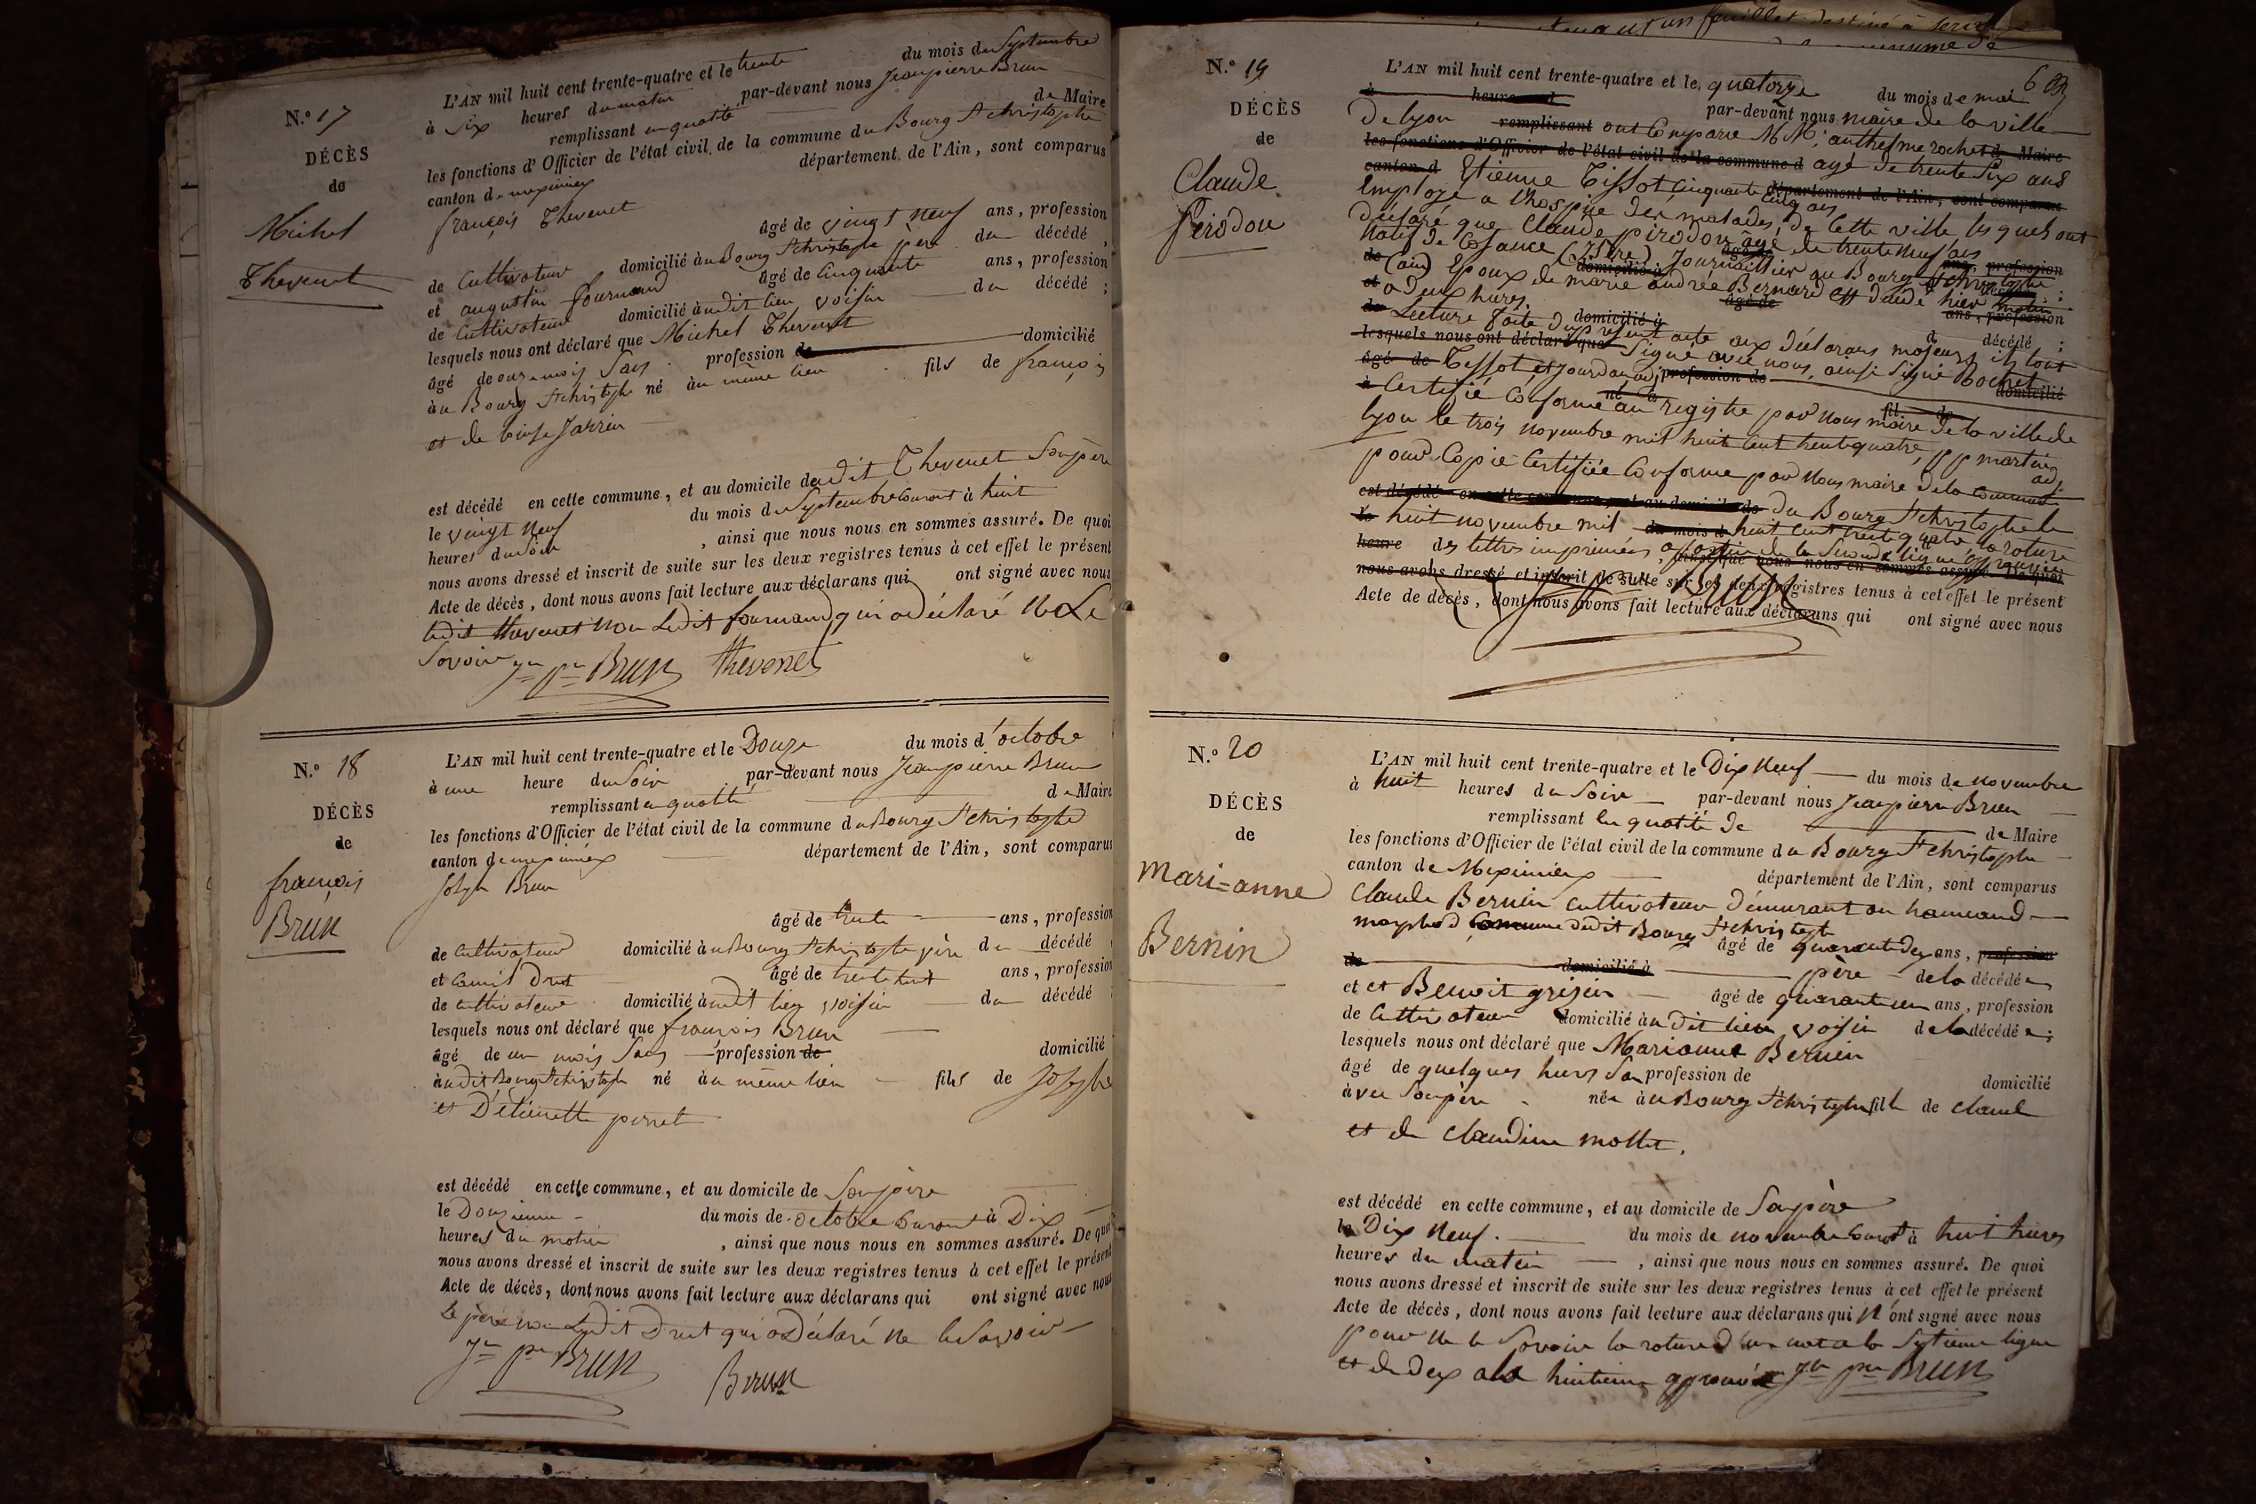 N.° 17
DÉCÈS
de
Michel
Thevenet
L'AN mil huit cent trente-quatre et le trente du mois de Septembre
à six heures du matin par-devant nous Jeanpierre Brun
remplissant en qualité de Maire
les fonctions d'Officier de l'état civil de la commune du Bourg St christophe
canton de meximieux département de l'Ain, sont comparus
françois Thevenet
âgé de vingt neuf ans, profession
de Cultivateur domicilié au Bourg St christophe père du décédé,
et augustin fournand âgé de Cinquante ans, profession
de Cultivateur domicilié audit lieu voisin du décédé;
lesquels nous ont déclaré que Michel Thevenet
âgé de onze mois Sans profession de domicilié
au Bourg St christophe né au même lieu fils de françois
et de Jarrin
est décédé en cette commune, et au domicile dudit Thevenet Sonpère
le vingt neuf du mois de Septembre Courant à huit
heures du Soir, ainsi que nous nous en sommes assuré. De quoi
nous avons dressé et inscrit de suite sur les deux registres tenus à cet effet le présent
Acte de décès, dont nous avons fait lecture aux déclarans qui ont signé avec nous
ledit thevenet non Ledit fournand qui a déclaré Ne Le
Savoir Jn pre Brun Thevenet
N.° 18
DÉCÈS
de
françois
Brun
L'AN mil huit cent trente-quatre et le Douze du mois d'octobre
à une heure du Soir par-devant nous Jeanpierre Brun
remplissant en qualité de Maire
les fonctions d'Officier de l'état civil de la commune du Bourg St christophe
canton de meximieux département de l'Ain, sont comparus
Joseph Brun
âgé de trente ans, profession
de Cultivateur domicilié au Bourg St christophe père du décédé
et Druet âgé de trentehuit ans, profession
de cultivateur domicilié audit lieu voisin du décédé
lesquels nous ont déclaré que françois Brun
âgé de un mois Sans profession de domicilié
audit Bourg St christophe né au même lieu fils de Joseph
et D'étiennette perret
est décédé en cette commune, et au domicile de Sonpère
le Douzieme du mois de octobre Courant à Dix
heures du matin, ainsi que nous nous en sommes assuré. De quoi
nous avons dressé et inscrit de suite sur les deux registres tenus à cet effet le présent
Acte de décès, dont nous avons fait lecture aux déclarans qui ont signé avec nous
Le père non Ledit Druet qui a Déclaré Ne le Savoir
Jn pre Brun Brun
N.° 19
DÉCÈS
de
Claude
Pirodon
L'AN mil huit cent trente-quatre et le quatorze du mois de mai
par-devant nous maire de la ville
De Lyon remplissant ont Comparu M.M. anthelme rochet
agé de trente Six ans
Etienne Tissot Cinquante Cinq ans
Employé a L'hospice des malades de Cette ville lesquels ont
déclaré que Claude pirodon âgé de trente neuf ans
Natif de Cosance (Isère) Journaillier au Bourg St christophe
(ain) Epoux de marie andrée Bernard est décédé hier matin
a Deux heures.
Lecture faite du present acte aux Déclarans majeurs, ils l'ont
Signé avec nous, ainsi Signé Rochet
Tissot et Jourdan adj
Certifié Conforme au registre par Nous maire de la ville de
Lyon le trois novembre mil huit Cent trente quatre, pp martin
adj
pour Copie Certifiée Conforme par Nous maire de la Commune
Du Bourg St christophe le
huit novembre mil huit Cent trente quatre la roture
des lettres imprimées a partir de la Seconde ligne approuvée
nous avons dressé et inscrit de suite sur les deux registres tenus à cet effet le présent
Acte de décès, dont nous avons fait lecture aux déclarans qui ont signé avec nous
N.° 20
DÉCÈS
de
Mari=anne
Bernin
L'AN mil huit cent trente-quatre et le Dix Neuf du mois de novembre
à huit heures du Soir par-devant nous Jeanpierre Brun
remplissant En qualité de de Maire
les fonctions d'Officier de l'état civil de la commune du Bourg St christophe
canton de Meximieux département de l'Ain, sont comparus
Claude Bernin Cultivateur Demeurant au hameaud
commune dudit Bourg St christophe
âgé de quarante Deux ans, profession
de domicilié à père de la décédée
et et Benoit grisen âgé de quarante un ans, profession
de Cultivateur domicilié audit lieu voisin de la décédée;
lesquels nous ont déclaré que Marianne Bernin
âgé de quelques heures San profession de domicilié
avec Sonpère née au Bourg St christophe fille de claude
et de claudine mollet.
est décédé en cette commune, et au domicile de Sonpère
le Dix Neuf. du mois de novembre Courant à huit heures
heures du matin, ainsi que nous nous en sommes assuré. De quoi
nous avons dressé et inscrit de suite sur les deux registres tenus à cet effet le présent
Acte de décès, dont nous avons fait lecture aux déclarans qui N'ont signé avec nous
pour Ne le Savoir la roture D'un mot a la Septieme ligne
et de Deux a la huitieme approuvée Jn pre Brun